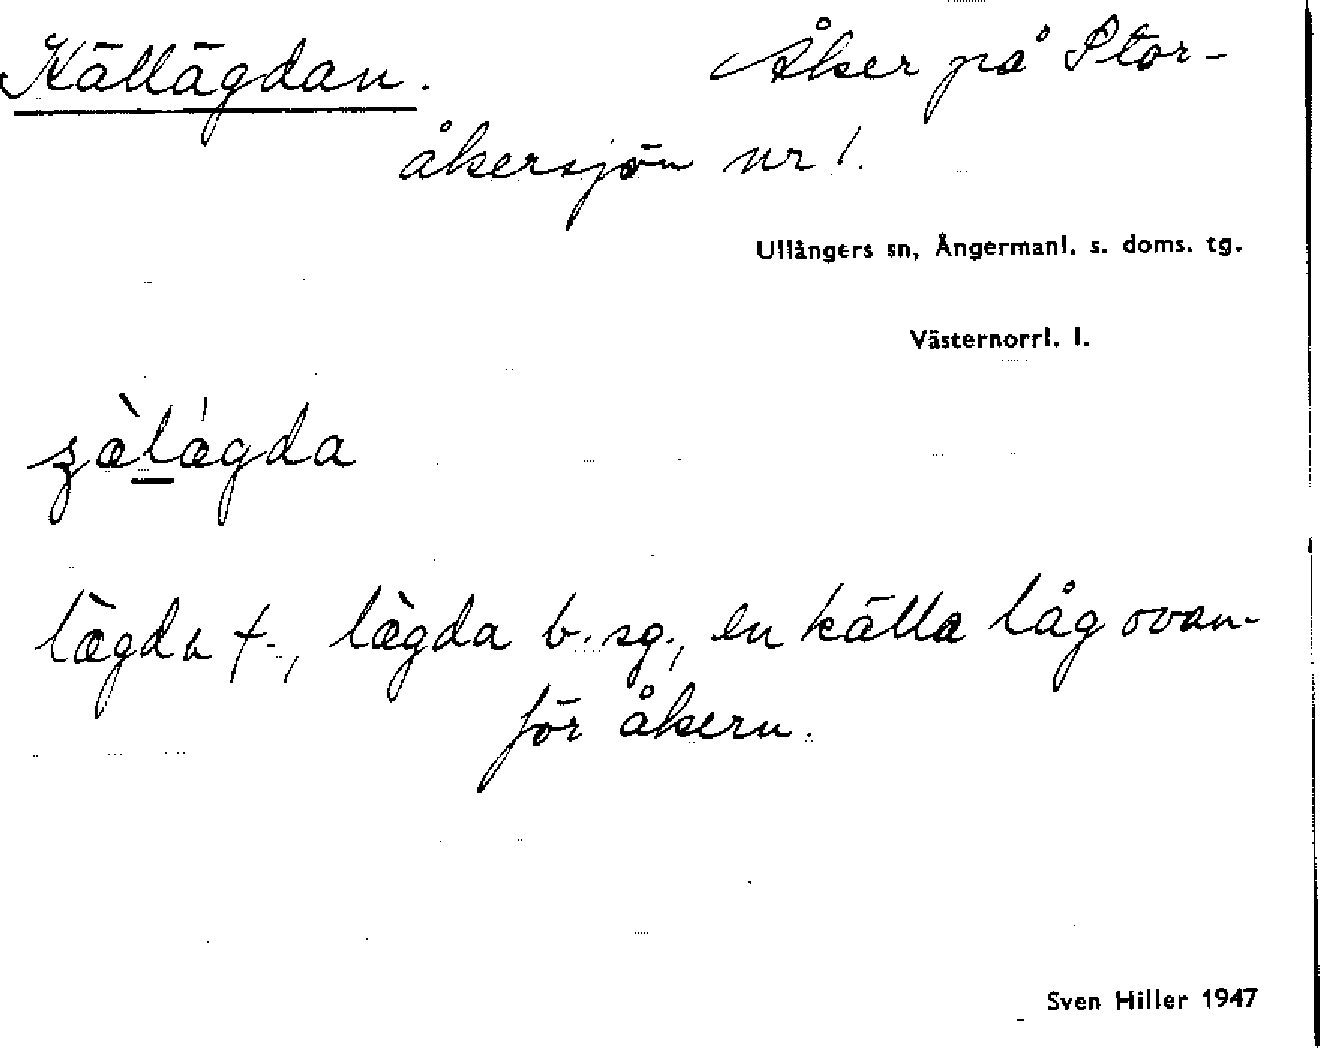 Källägdan. Åker på Stor-
åkersjön nr 1.
Ullångers sn, Ångermanl. s. doms. tg.
Västernorrl. l.
lægda f., lægda b. sg., en källa låg ovan-
för åkern.
Sven Hiller 1947